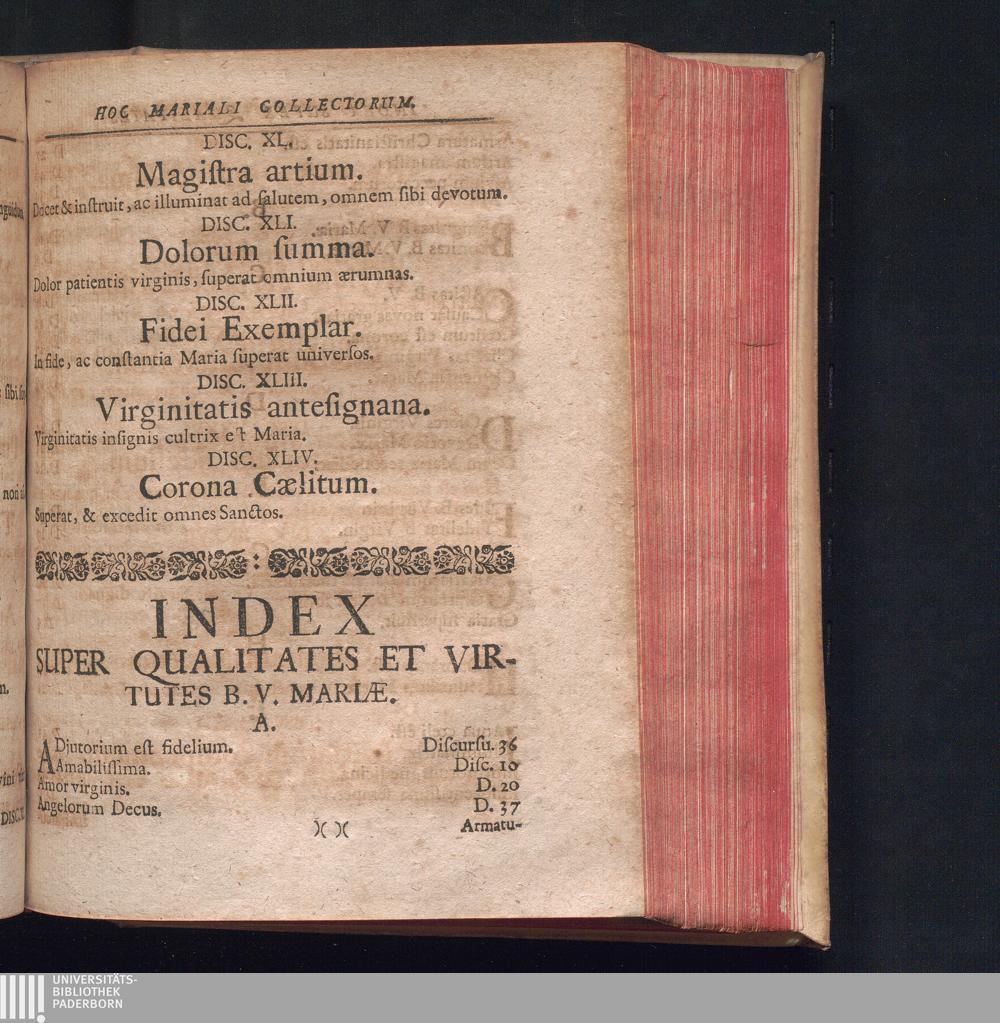 HOC MARIALI COLLECTORUM.
DISC. XL.
Magiſtra artium.
Docet & inſtruit, ac illuminat ad ſalutem, omnem ſibi devotum.
DISC. XLI.
Dolorum ſumma.
Dolor patientis virginis, ſuperat omnium ærumnas.
DISC. XLII.
Fidei Exemplar.
In fide, ac conſtantia Maria ſuperat univerſos.
DISC. XLIII.
Virginitatis anteſignana.
Virginitatis inſignis cultrix eſt Maria.
DISC. XLIV.
Corona Cælitum.
Superat, & excedit omnes Sanctos.
INDEX
SUPER QUALITATES ET VIR-
TUTES B. V. MARIÆ.
A.
ADjutorium eſt fidelium. Diſcurſu. 36
Amabiliſſima. Diſc. 10
Amor virginis. D. 20
Angelorum Decus. D. 37
)( )( Armatu-
UNIVERSITÄTS-
BIBLIOTHEK
PADERBORN